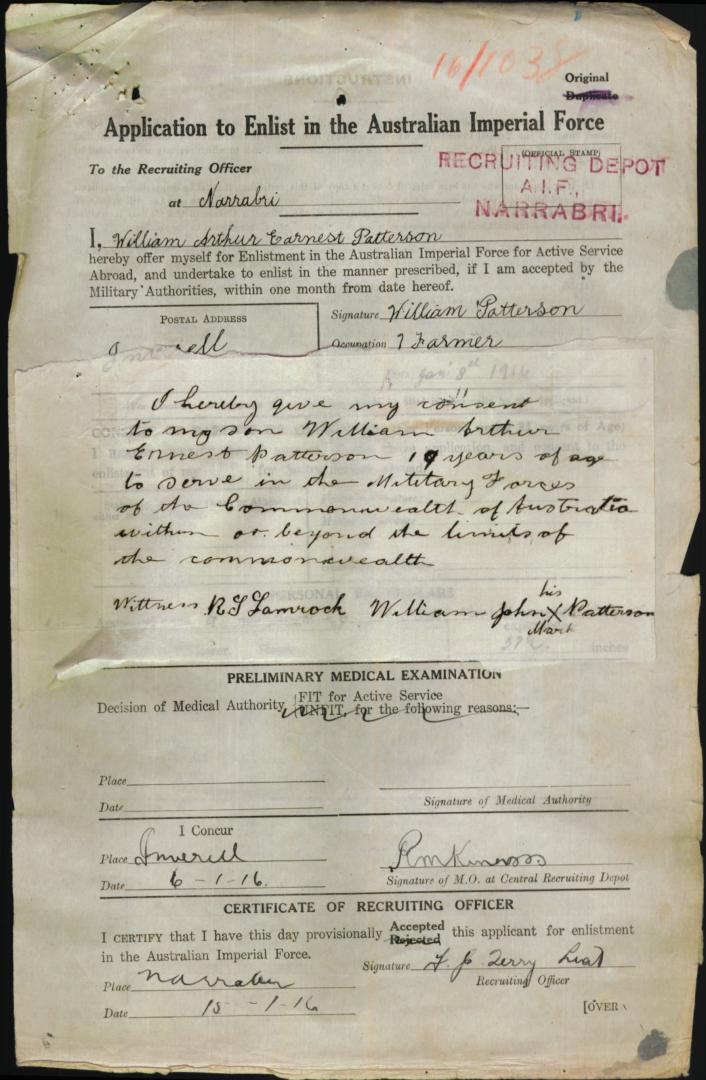 16/1038
Original
Duplicate
Application to Enlist in the Australian Imperial Force
(OFFICIAL STAMP)
To the Recruiting Officer
RECRUITING DEPOT
A.I.F.,
NARRABRI.
at Narrabri
I, William Arthur Earnest Patterson
hereby offer myself for Enlistment in the Australian Imperial Force for Active Service
Abroad, and undertake to enlist in the manner prescribed, if I am accepted by the
Military Authorities, within one month from date hereof.
POSTAL ADDRESS
Signature William Patterson
Inverell
Occupation Farmer
I hereby give my consent
to my son William Arthur
Ernest Patterson 19 years of age
to serve in the Military Forces
of the Commonwealth of Australia
within or beyond the limits of
the commonwealth
Wittness R S Lamrock William John his X Mark Patterson
PRELIMINARY MEDICAL EXAMINATION
Decision of Medical Authority
FIT for Active Service
UNFIT, for the following reasons:—
Place
Date
Signature of Medical Authority
I Concur
Place Inverell
Date 6-1-16.
Signature of M.O. at Central Recruiting Depot
CERTIFICATE OF RECRUITING OFFICER
I CERTIFY that I have this day provisionally Accepted Rejected this applicant for enlistment
in the Australian Imperial Force.
Signature F. J. Terry Lieut
Recruiting Officer
Place Narrabri
Date 18-1-16
[OVER